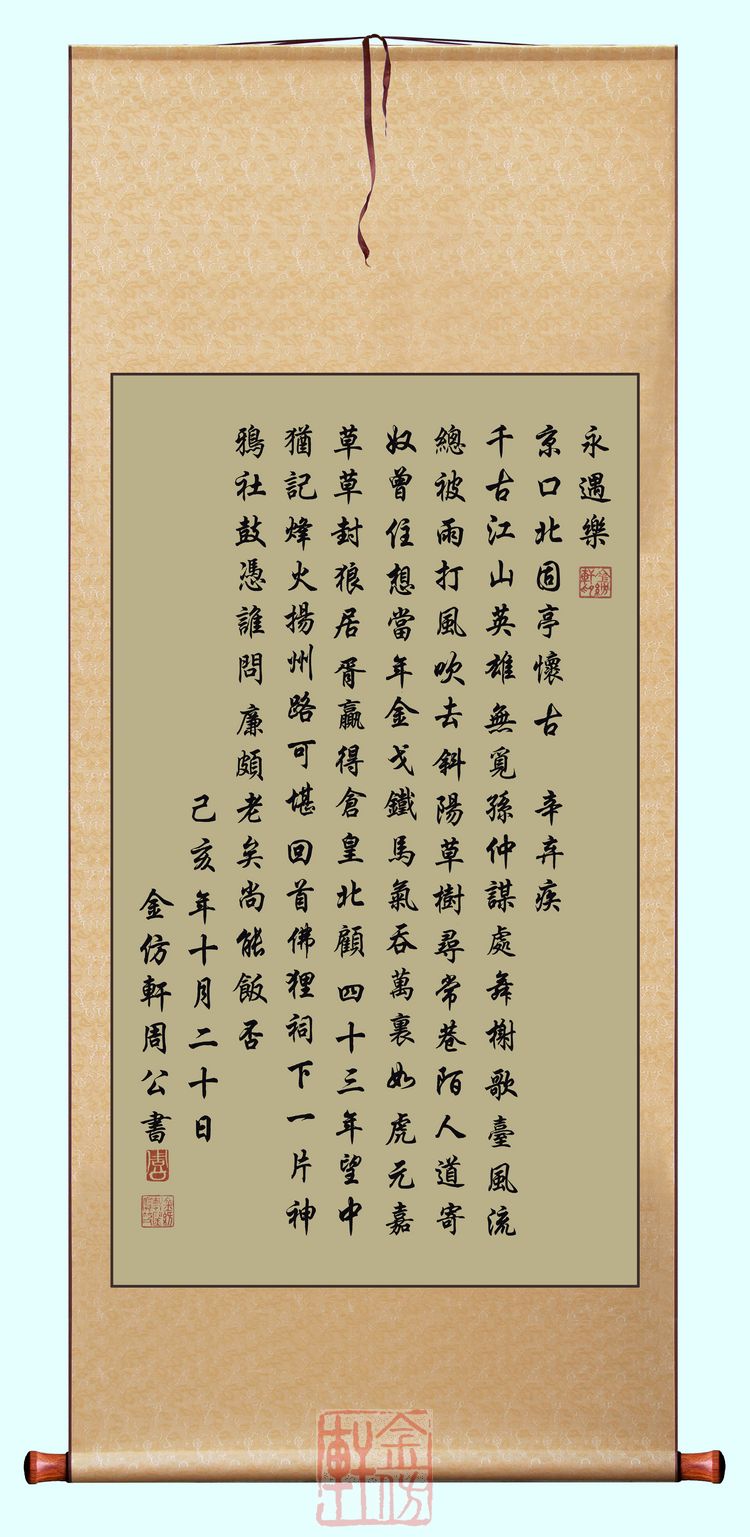 永遇樂
京口北固亭懷古 辛弃疾
千古江山英雄無覓孫仲謀處舞榭歌臺風流
總被雨打風吹去斜陽草樹尋常巷陌人道寄
奴曾住想當年金戈鐵馬氣吞萬裏如虎元嘉
草草封狼居胥贏得倉皇北顧四十三年望中
猶記烽火揚州路可堪回首佛狸祠下一片神
鴉社鼓憑誰問廉頗老矣尚能飯否
己亥年十月二十日
金仿軒周公書
金仿軒